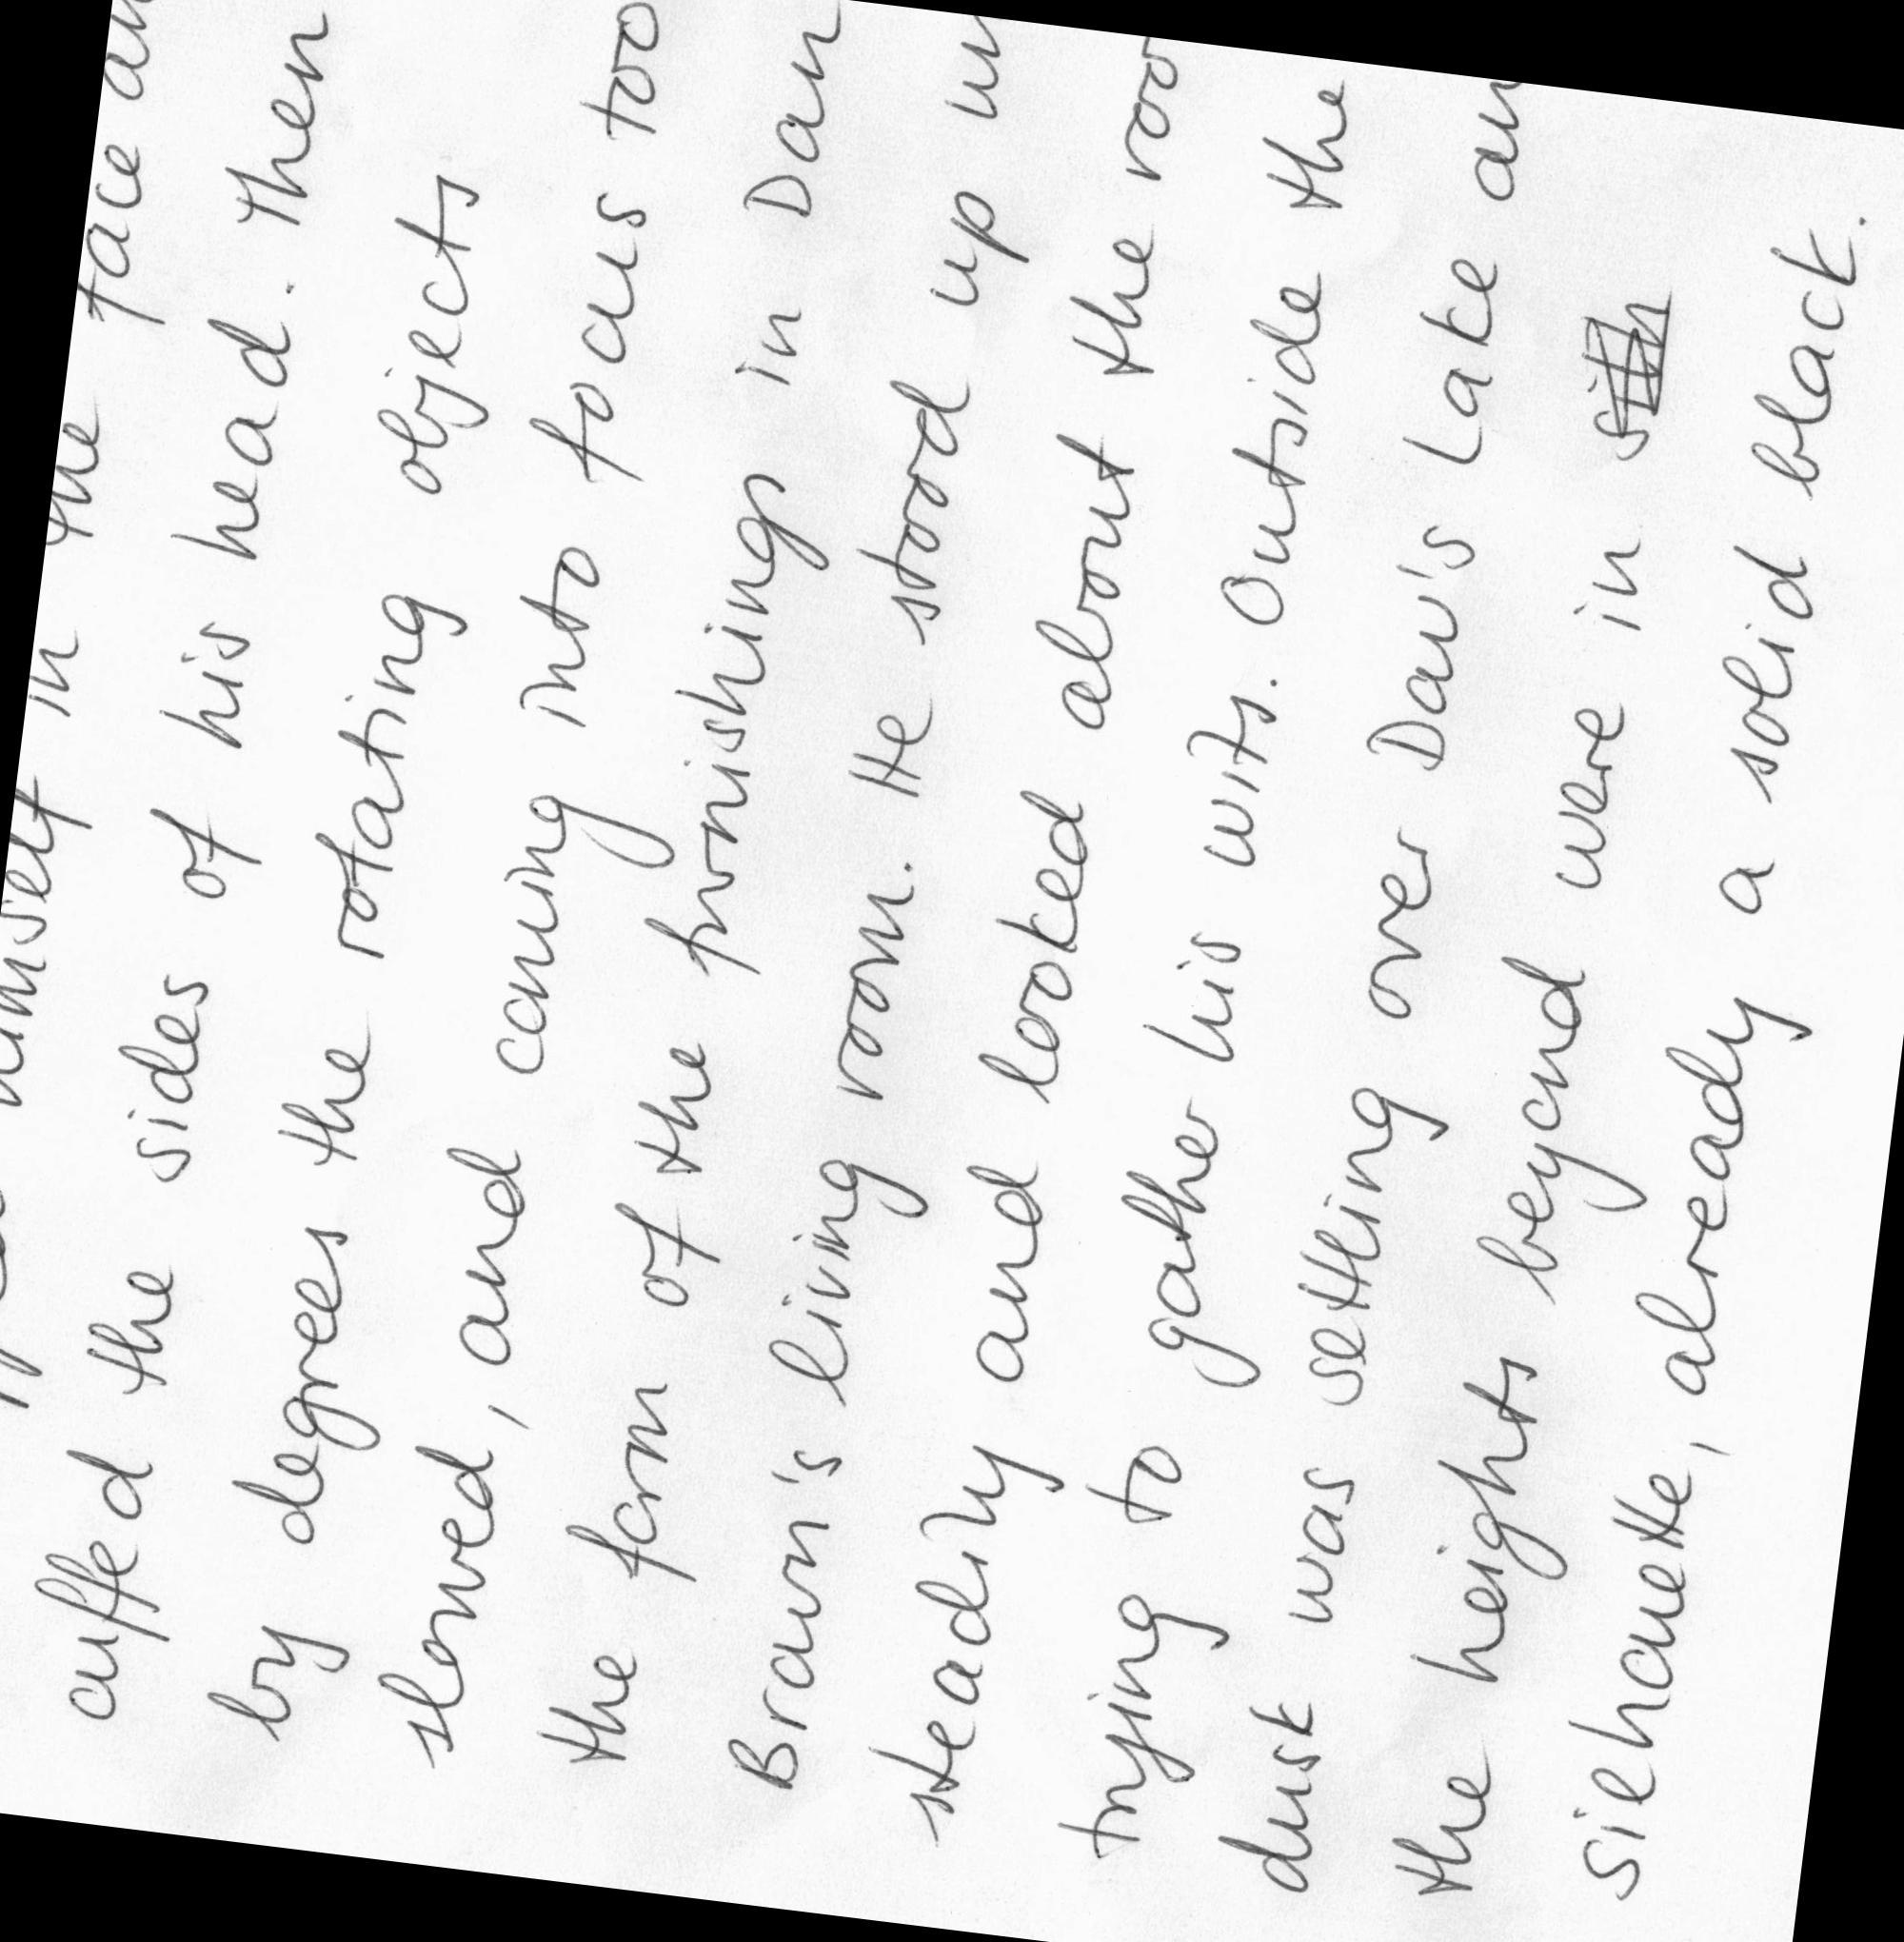 himself in the face an
cuffed the sides of his head. Then
by degrees the rotating objects
slowed, and coming into focus too
the form of the furnishings in Dan
Brawn's living room. He stood up un
steadily and looked about the roo
trying to gather his wits. Outside the
dusk was settling over Daw's Lake an
the heights beyond were in
silhouette, already a solid black.